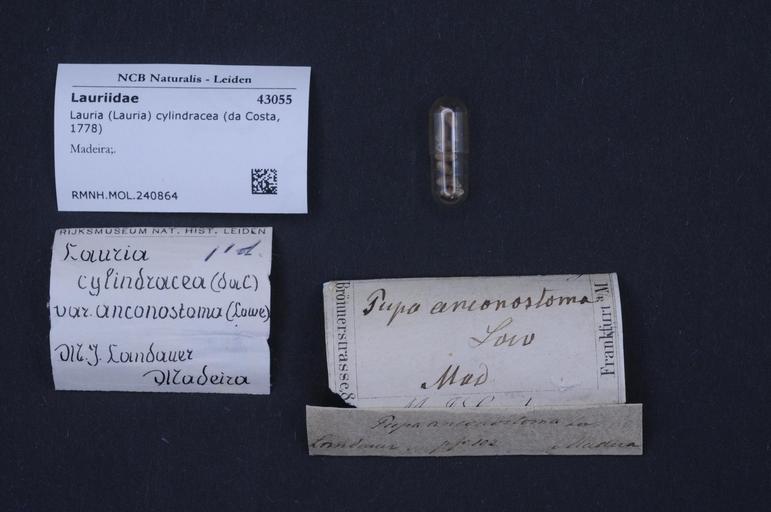 NCB Naturalis - Leiden
Lauriidae 43055
Lauria (Lauria) cylindracea (da Costa,
1778)
Madeira;.
RMNH.MOL.240864
RIJKSMUSEUM NAT. HIST. LEIDEN
Lauria
cylindracea (daC)
var. anconostoma (Lowe)
M.J. Landauer
Madeira
Brönnerstrasse,8
Pupa anconostoma
Low
Mad
Frankfurt a/M
Pupa anconostoma Lo
Landauer Madera